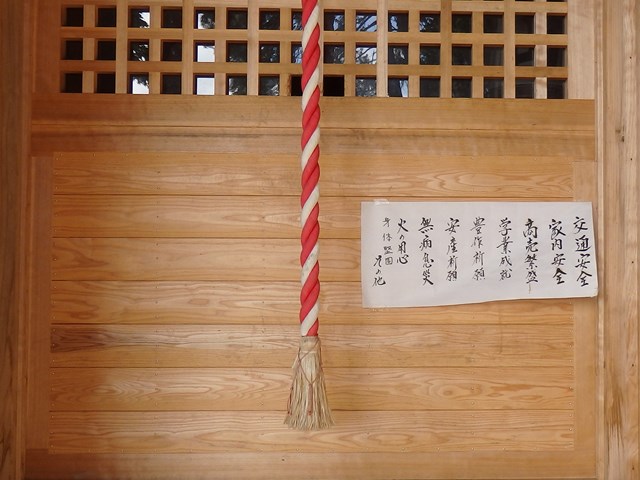 交通安全
家内安全
商売繁盛
学業成就
豊作祈願
安産祈願
無病息災
火の用心
身体堅固
その他